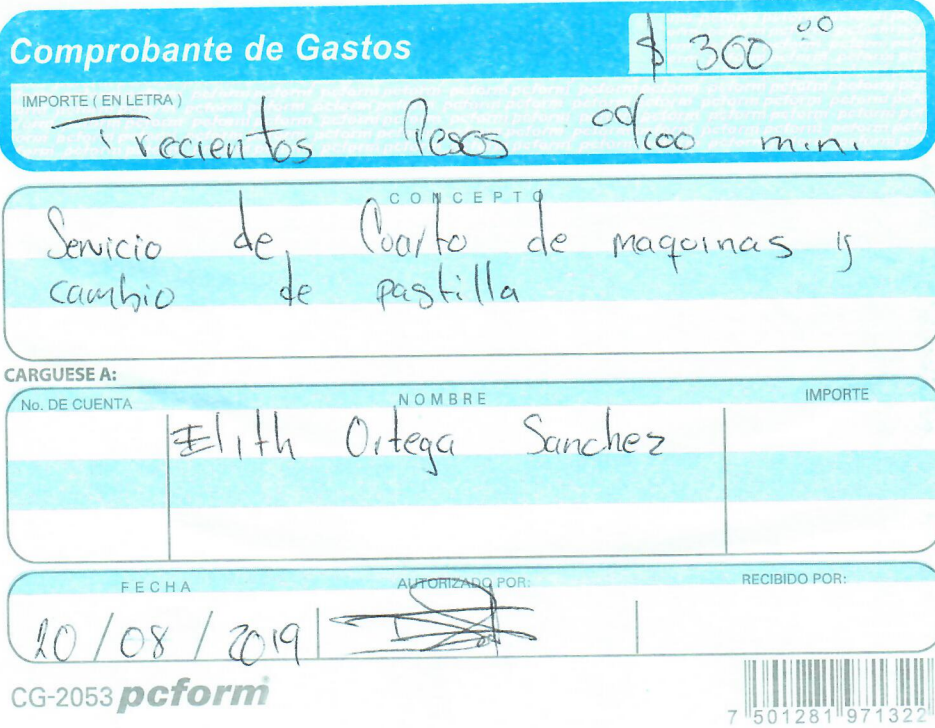 Comprobante de Gastos
$ 300 00
IMPORTE ( EN LETRA )
Trecientos Pesos 00/100 m.n.
CONCEPTO
Servicio de Cuarto de maquinas y
cambio de pastilla
CARGUESE A:
No. DE CUENTA NOMBRE IMPORTE
Elith Ortega Sanchez
FECHA AUTORIZADO POR: RECIBIDO POR:
20 / 08 / 2019
CG-2053 pcform
7 501281 971322